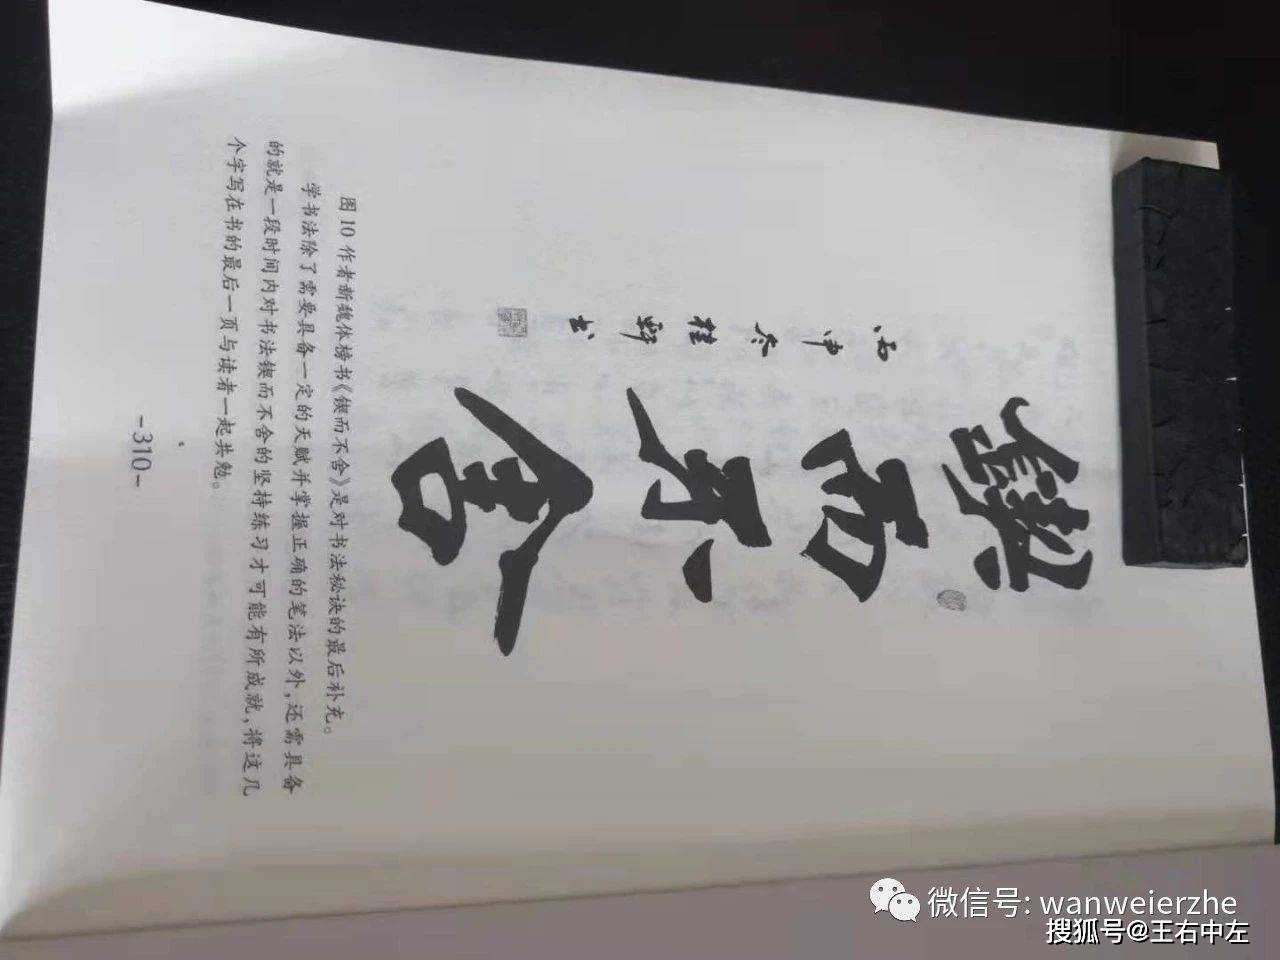 锲而不舍
丙申冬桂野书
图10 作者新魏体榜书《锲而不舍》是对书法秘诀的最后补充。
学书法除了需要具备一定的天赋并掌握正确的笔法以外,还需具备
的就是一段时间内对书法锲而不舍的坚持练习才可能有所成就,将这几
个字写在书的最后一页与读者一起共勉。
-310-
微信号: wanweierzhe
搜狐号@王右中左